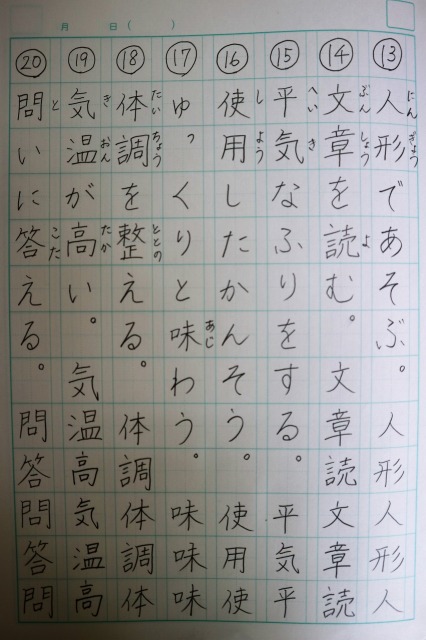 月 日( )
⑬ 人形であそぶ。 人形人形人
にんぎょう
⑭ 文章を読む。 文章読文章読
ぶんしょう よ
⑮ 平気なふりをする。 平気平
へいき
⑯ 使用したかんそう。 使用使
しよう
⑰ ゆっくりと味わう。 味味味
あじ
⑱ 体調を整える。 体調体調体
たいちょう ととの
⑲ 気温が高い。 気温高気温高
きおん たか
⑳ 問いに答える。 問答問答問
と こた